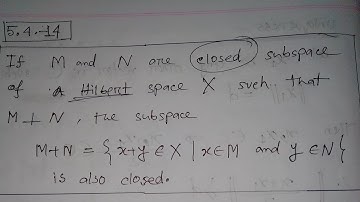 5.4.-14
If M and N are closed subspace
of a Hilbert space X such that
M ⊥ N, the subspace
M+N = { x+y ∈ X | x∈M and y∈N}
is also closed.